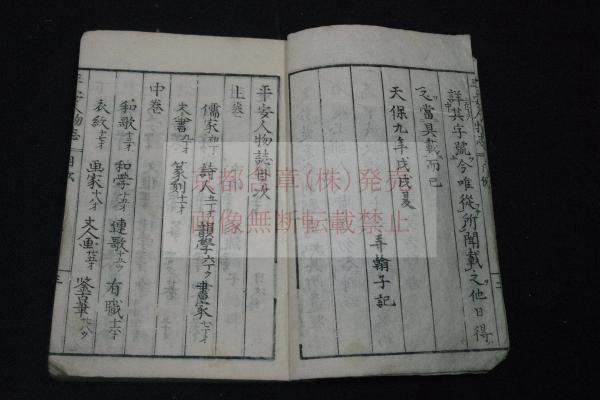 詳其字號今唯從所聞載之他日得
之當具載而已
天保九年戊戌夏
弄翰子記
平安人物誌目次
上巻
儒家 詩人 韻學 書家
篆刻
中巻
和歌 和学 連歌 有職
衣紋 画家 文人画 鑒古筆
平安人物志 目次
京都古章(株)発売
画像無断転載禁止